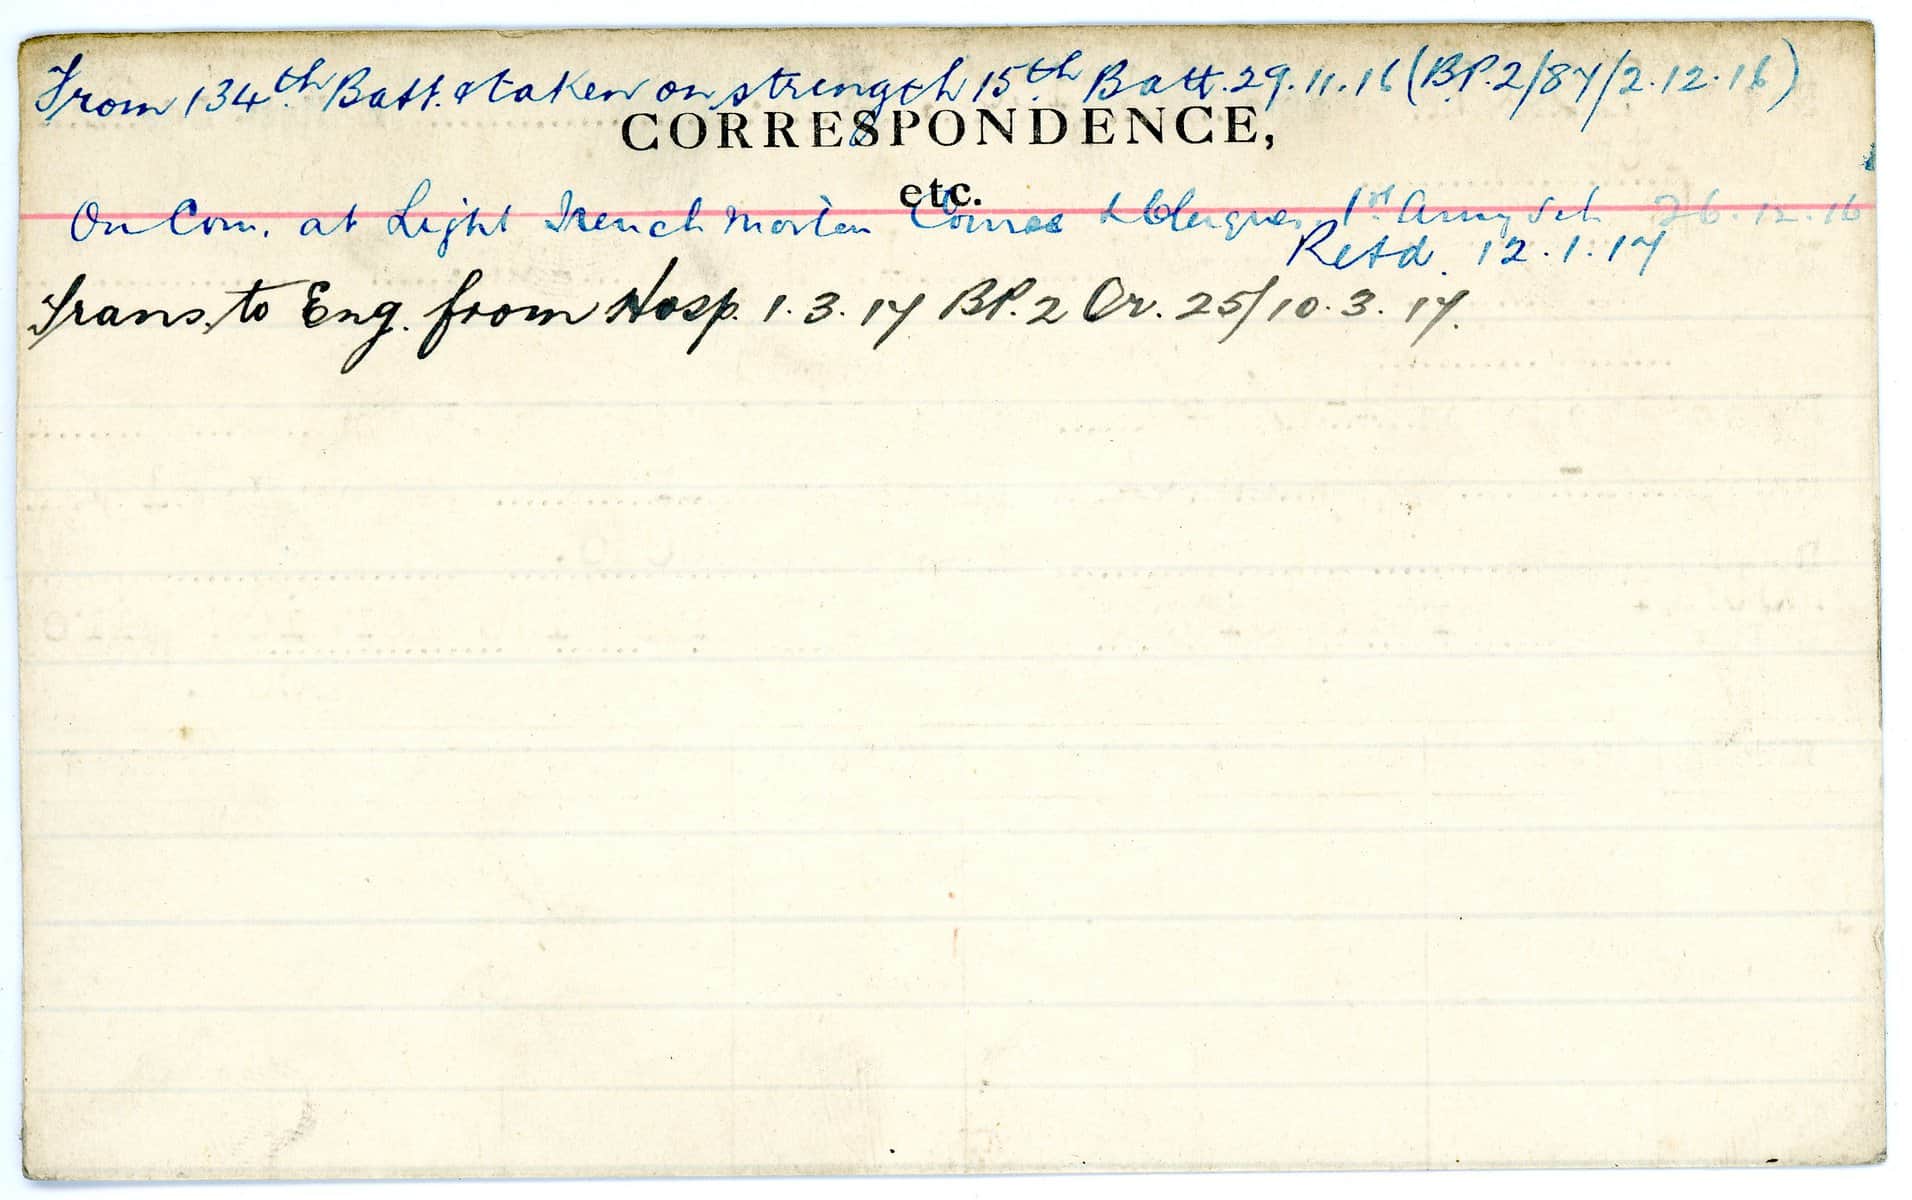 From 134th Batt. & taken on strength 15th Batt. 29.11.16 (BP.2/87/2.12.16)
CORRESPONDENCE,
etc.
On Com. at Light Trench Mortar Course 1st Army Sch 26.12.16
Retd. 12.1.17
Trans. to Eng. from Hosp. 1.3.17 BP.2 Or. 25/10.3.17.